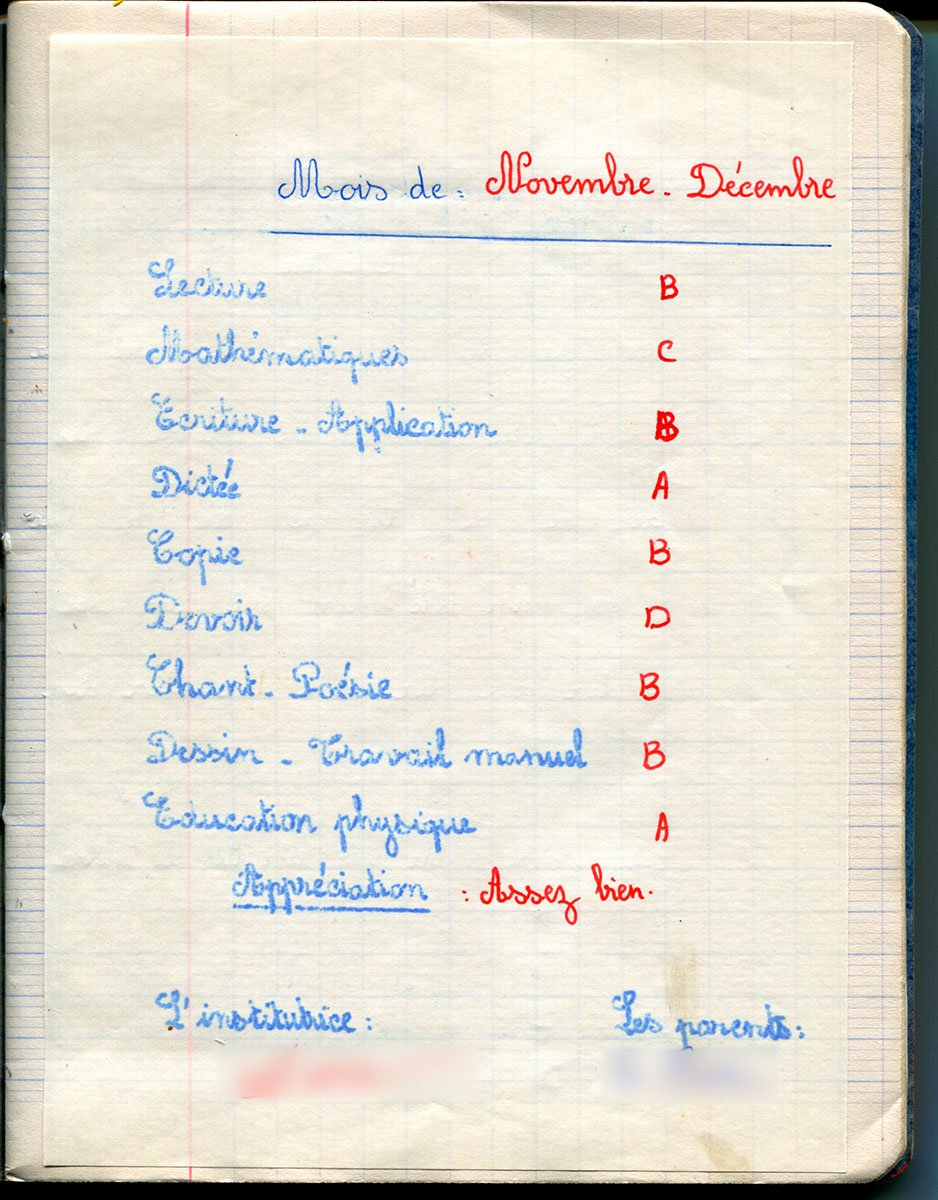 Mois de : Novembre - Décembre
Lecture B
Mathématiques C
Ecriture - Application B
Dictée A
Copie B
Devoir D
Chant - Poésie B
Dessin - Travail manuel B
Education physique A
Appréciation : Assez bien.
L'institutrice : Les parents :